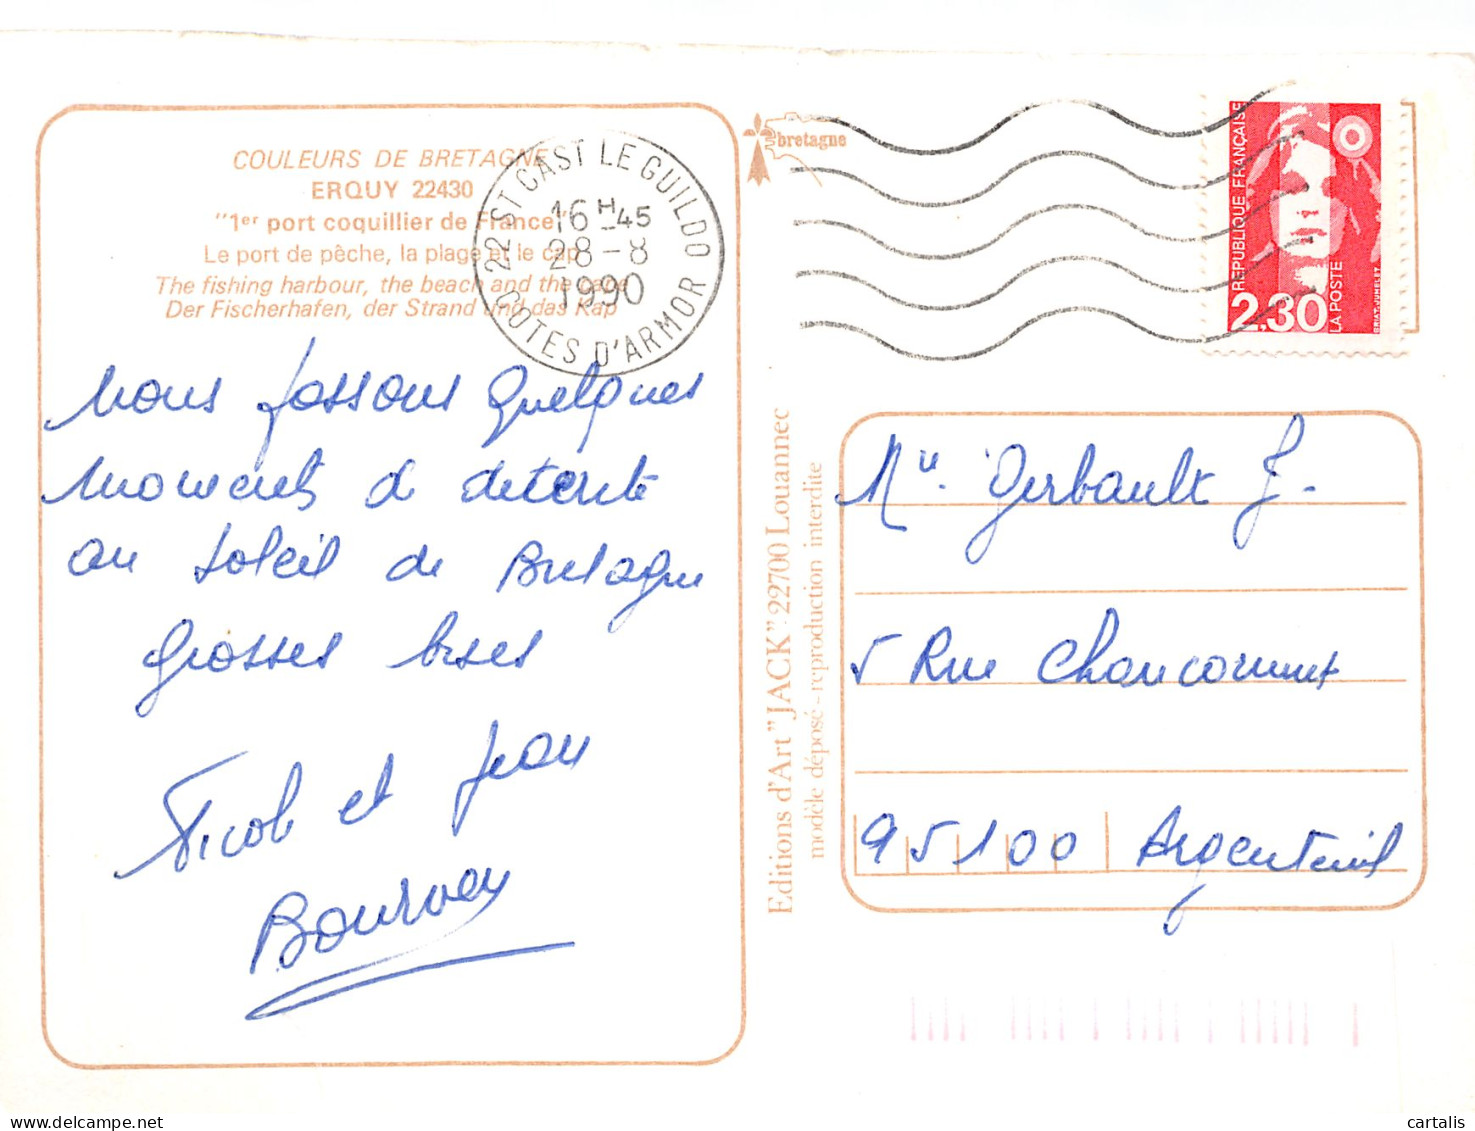 COULEURS DE BRETAGNE
ERQUY 22430
"1er port coquillier de France"
Le port de pêche, la plage et le cap
The fishing harbour, the beach and the cape
Der Fischerhafen, der Strand und das Kap
22 ST CAST LE GUILDO
16 H 45
28 - 8
1990
COTES D'ARMOR
Nous passons quelques
moments de detente
au soleil de Bretagne
Grosses bises
Nicole et Jean
Bourvey
bretagne
REPUBLIQUE FRANÇAISE
2,30
LA POSTE
BRIAT-JUMELET
Editions d'Art "JACK" 22700 Louannec
modèle déposé - reproduction interdite
Gerbault J.
5 Rue
95100 Argenteuil
cartalis